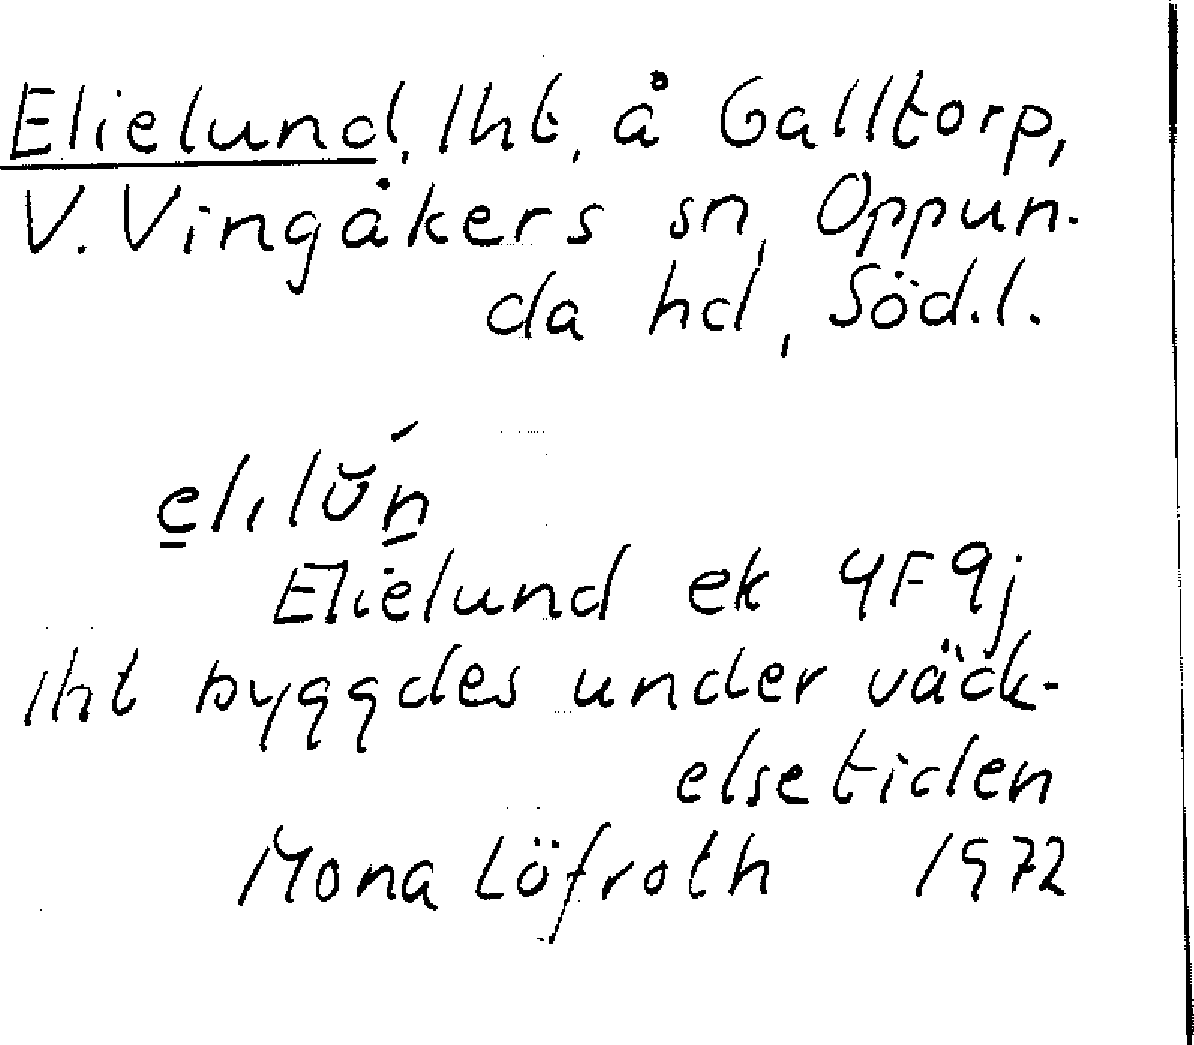 Elielund, lht, å Galltorp,
V. Vingåkers sn, Oppun-
da hd, Söd.l.
e̲lɩlŭń̲
Elielund ek 9F9j
lht byggdes under väck-
elsetiden
Mona Löfroth 1972